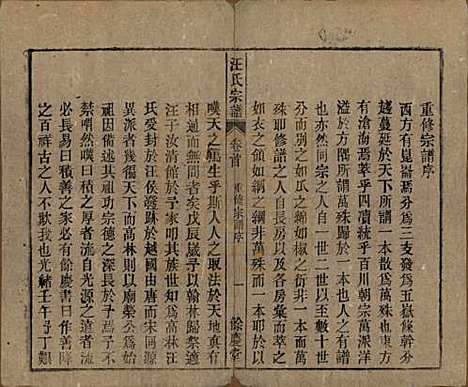 重修宗譜序
西方有崑崙焉分為三支發為五嶽條幹分
越蔓延於天下所謂一本散為萬殊也東方
有滄海焉萃乎四瀆統乎百川朝宗萬派洋
溢於方隅所謂萬殊歸於一本也夫物有然
也人亦然同宗之人自一世二世以至數十世
分而別之如瓜之綿如椒之衍而一本散為萬
殊耶修譜之人自長房以及各房彙而萃之
如衣之領如網之綱非萬殊而一本耶於以
嘆天之生乎斯人人之取法於天地真有
相通而無間者矣戊辰歲予以翰林歸祭適
汪子汝清館於予家叩其族世知為高林汪
氏受封於汪侯發跡於越國由唐而宋而明
異派者幾徧天下而高林則以廟榮公為
祖因思高林之宗德長於高林焉予不
禁喟然嘆曰積之厚者流自光源之遠者流
必長易曰積善之家必有餘慶書曰作善降
之百祥古之人不歎我也光緒壬午予丁艱
汪氏宗譜
卷首
重修宗譜序
一
餘慶堂